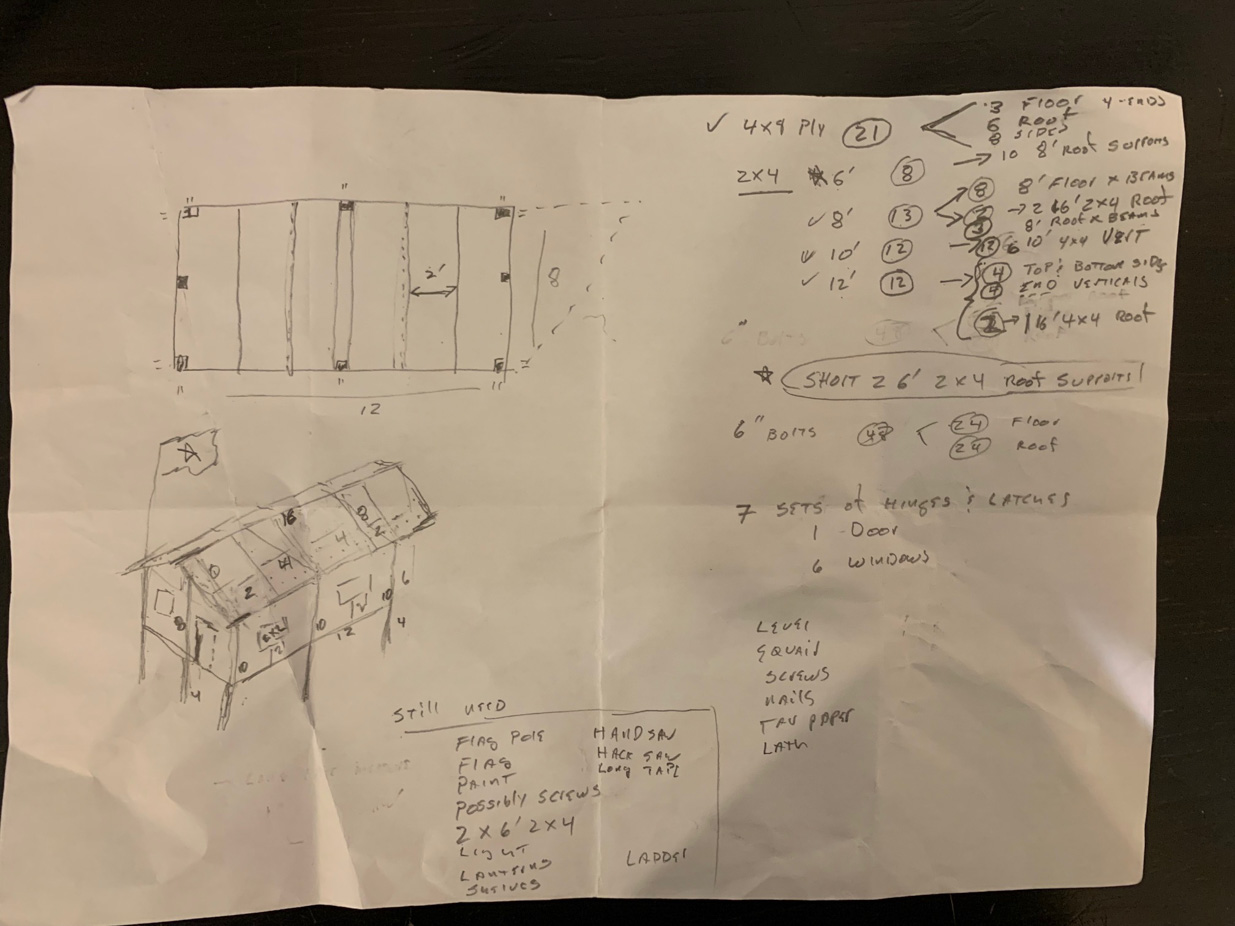 ✓ 4x8 Ply 21
3 Floor 4-ENDS
6 Roof
8 SIDES
→ 10 8' Roof Supports
2x4 6' 8
✓ 8' 13
8 8' Floor x BEAMS
→ 2 16' 2x4 Roof
3 8' Roof x BEAMS
10' 12 → 6 10' 4x4 VERT
✓ 12' 12 → 4 TOP & BOTTOM SIDE
4 END VERTICALS
2 → 16' 4x4 Roof
6" Bolts
☆ SHORT 2 6' 2x4 Roof Supports!
6" Bolts 48 < 24 Floor
24 Roof
7 SETS of Hinges & LATCHES
1 Door
6 WINDOWS
LEVEL
SCREWS
NAILS
TAR PAPER
LATH
2'
8
12
16
8
2
4
2
4
8
2x2
12
10
10
12
10
6
4
4
Still NEED
Flag Pole
Flag
Paint
Possibly Screws
2 x 6' 2x4
Light
Lanterns
Shelves
HANDSAW
HACK SAW
Long TAPE
LADDER